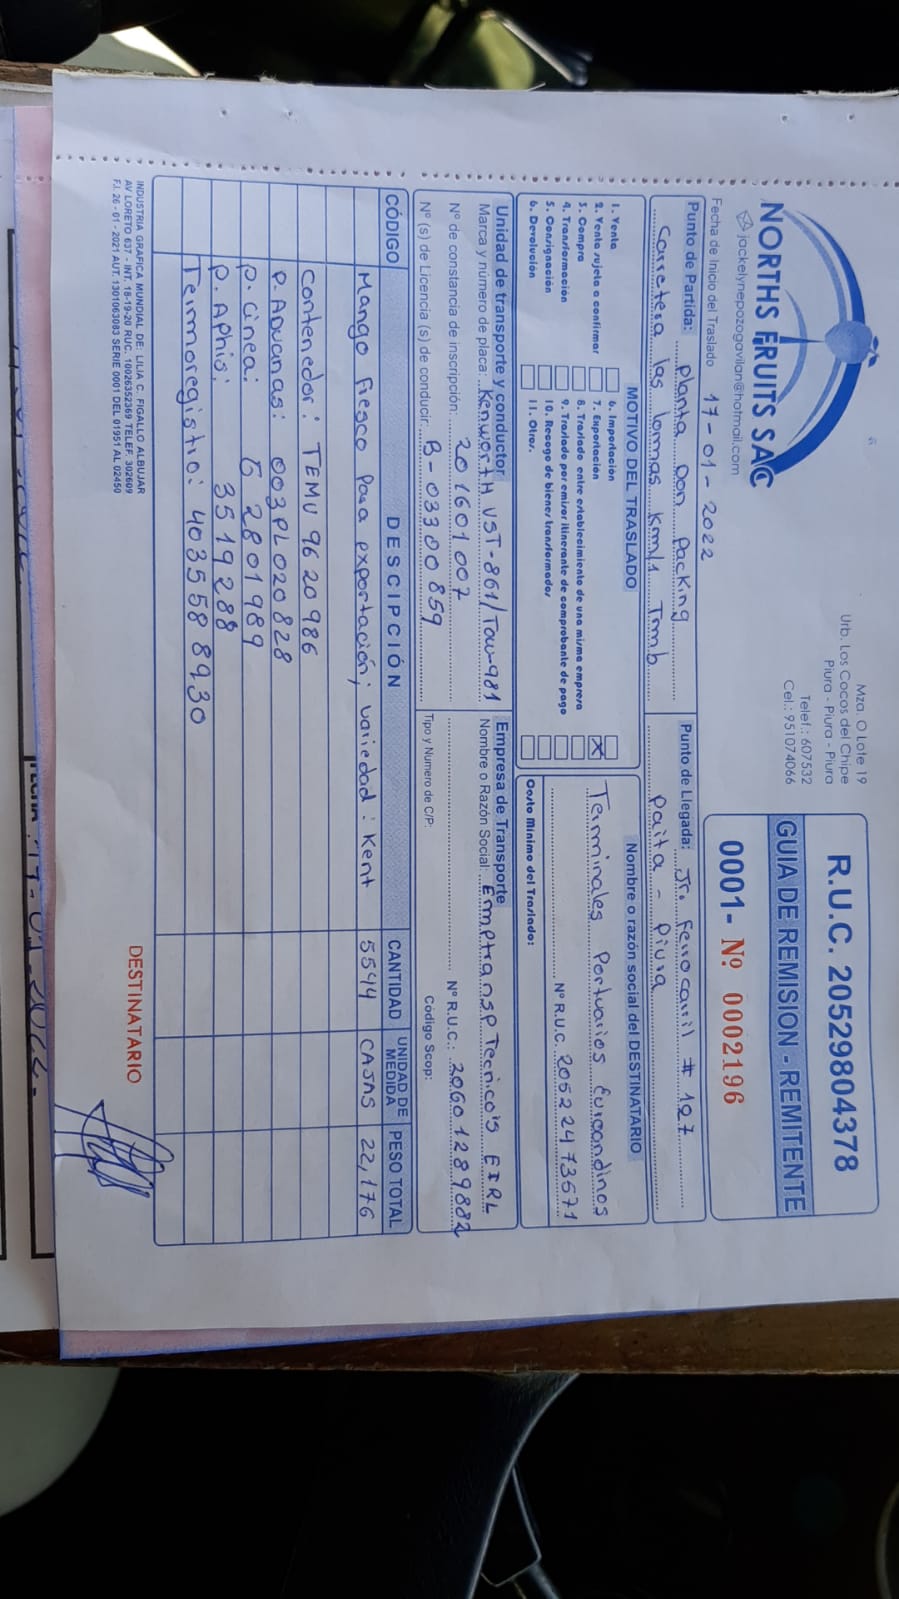 NORTHS FRUITS SAC
jackelynepozogavilan@hotmail.com
Mza. O Lote 19
Urb. Los Cocos del Chipe
Piura - Piura - Piura
Telef.: 607532
Cel.: 951074066
R.U.C. 20529804378
GUIA DE REMISION - REMITENTE
0001- Nº 0002196
Fecha de Inicio del Traslado 17-01-2022
Punto de Partida: planta Don Packing
Carretera las lomas Km/1 Tmb
Punto de Llegada: Jr. Ferrocarril # 127
Paita - Piura
MOTIVO DEL TRASLADO
1. Venta
2. Venta sujeta a confirmar
3. Compra
4. Transformación
5. Consignación
6. Devolución
6. Importación
7. Exportación X
8. Traslado entre establecimiento de una misma empresa
9. Traslado por emisor itinerante de comprobante de pago
10. Recogo de bienes transformados
11. Otros.
Nombre o razón social del DESTINATARIO
Terminales Portuarios Euroandinos
Nº R.U.C. 20522473571
Costo Mínimo del Traslado:
Unidad de transporte y conductor
Marca y número de placa: Kenworth V5T-861/Tav-981
Nº de constancia de inscripción: 201601007
Nº (s) de Licencia (s) de conducir: B-03380859
Empresa de Transporte
Nombre o Razón Social: Emptransp Tecnico's EIRL
Nº R.U.C.: 20601289882
Tipo y Numero de C/P:
Código Scop:
CÓDIGO DESCIPCIÓN CANTIDAD UNIDAD DE MEDIDA PESO TOTAL
Mango fresco para exportación; variedad: Kent 5544 CAJAS 22,176
Contenedor: TEMU 9620986
P. Aduanas: 003PL020828
P. Cinea: 6 2801989
P. Aphis: 3519288
Termoregistro: 4035588930
INDUSTRIA GRAFICA MUNDIAL DE: LILIA C. FIGALLO ALBUJAR
AV LORETO 637 - INT. 18-19-20 RUC. 10026352369 TELEF. 302609
F.I. 26 - 01 - 2021 AUT. 1301063083 SERIE 0001 DEL 01951 AL 02450
DESTINATARIO